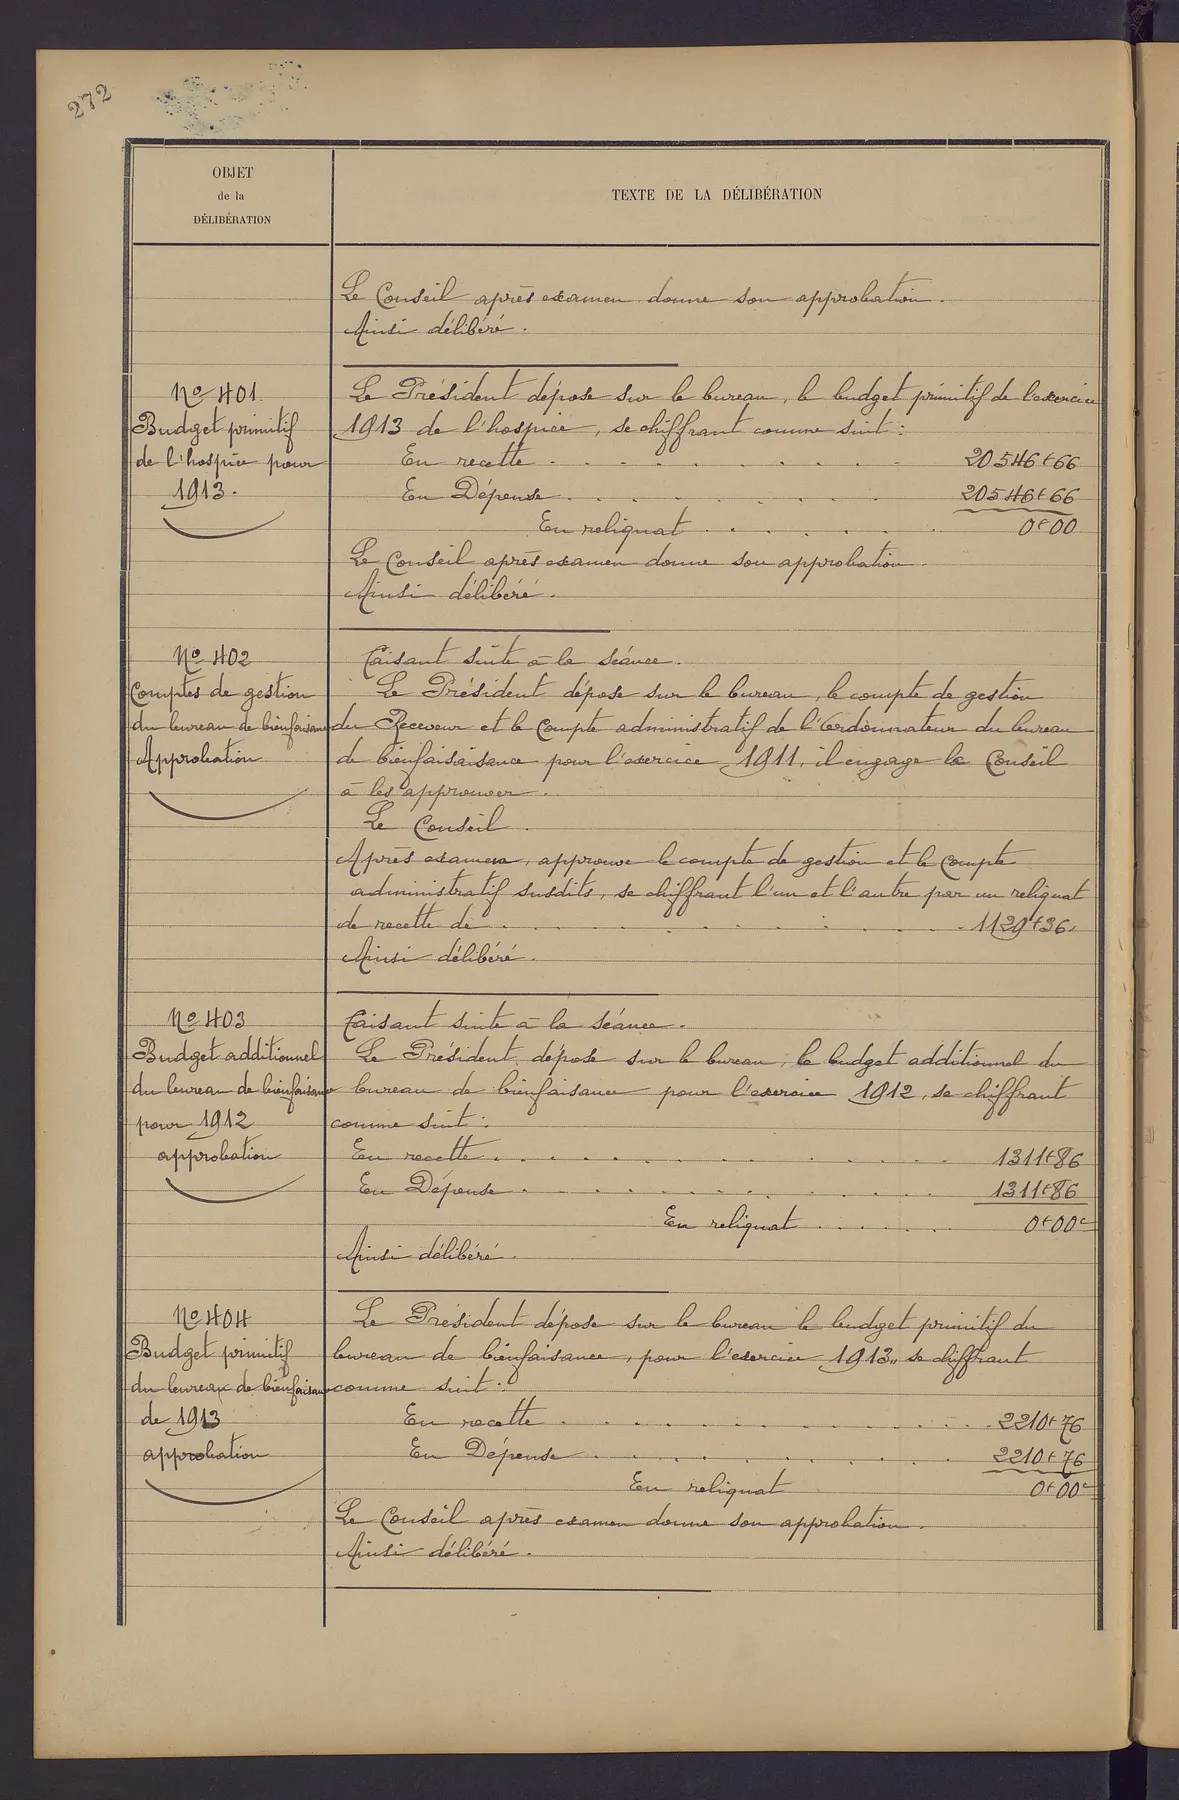 272
OBJET
de la
DÉLIBÉRATION
TEXTE DE LA DÉLIBÉRATION
Le Conseil après examen donne son approbation.
Ainsi délibéré.
No 401.
Budget primitif
de l'hospice pour
1913.
Le Président dépose sur le bureau, le budget primitif de l'exercice
1913 de l'hospice, se chiffrant comme suit:
En recette . . . . . . . . . 20546f66
En Dépense . . . . . . . . . 20546f66
En reliquat . . . . . . 0f00
Le Conseil après examen donne son approbation.
Ainsi délibéré.
No 402
Comptes de gestion
du bureau de bienfaisance
Approbation
Faisant suite à la séance.
Le Président dépose sur le bureau, le compte de gestion
du Receveur et le Compte administratif de l'Ordonnateur du bureau
de bienfaisaisance pour l'exercice 1911, il engage le Conseil
à les approuver.
Le Conseil.
Après examen, approuve le compte de gestion et le Compte
administratif susdits, se chiffrant l'un et l'autre par un reliquat
de recette de . . . . . . . . . . . 1129f36.
Ainsi délibéré.
No 403
Budget additionnel
du bureau de bienfaisance
pour 1912
approbation
Faisant suite à la séance.
Le Président dépose sur le bureau, le budget additionnel du
bureau de bienfaisance pour l'exercice 1912, se chiffrant
comme suit:
En recette . . . . . . . . . . . 1311f86
En Dépense . . . . . . . . . . 1311f86
En reliquat . . . . . . 0f00c
Ainsi délibéré.
No 404
Budget primitif
du bureau de bienfaisance
de 1913
approbation
Le Président dépose sur le bureau le budget primitif du
bureau de bienfaisance, pour l'exercice 1913, se chiffrant
comme suit:
En recette . . . . . . . . . . . 2210f76
En Dépense . . . . . . . . . 2210f76
En reliquat 0f00c
Le Conseil après examen donne son approbation.
Ainsi délibéré.